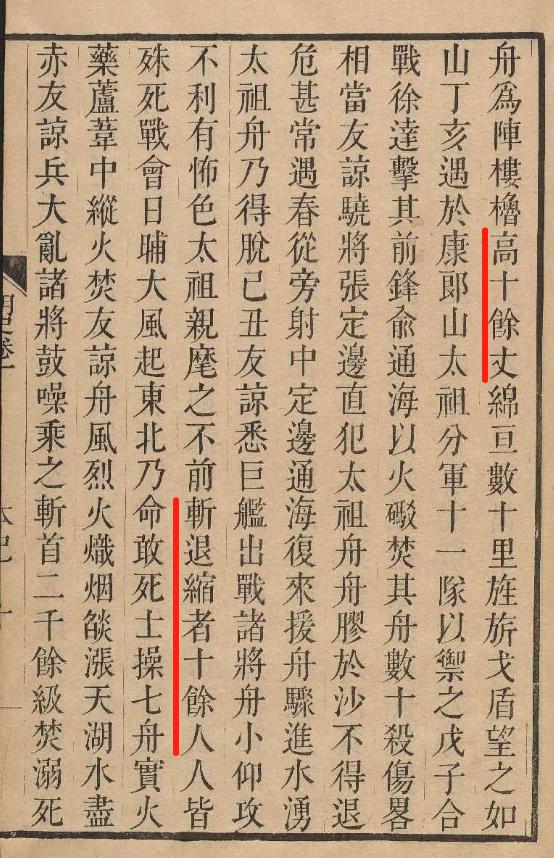 舟爲陣樓櫓高十餘丈綿亘數十里旌旂戈盾望之如
山丁亥遇於康郎山太祖分軍十一隊以禦之戊子合
戰徐達擊其前鋒兪通海以火礮焚其舟數十殺傷畧
相當友諒驍將張定邊直犯太祖舟舟膠於沙不得退
危甚常遇春從旁射中定邊通海復來援舟驟進水湧
太祖舟乃得脫已丑友諒悉巨艦出戰諸將舟小仰攻
不利有怖色太祖親麾之不前斬退縮者十餘人人皆
殊死戰會日晡大風起東北乃命敢死士操七舟實火
藥蘆葦中縱火焚友諒舟風烈火熾烟燄漲天湖水盡
赤友諒兵大亂諸將鼓噪乘之斬首二千餘級焚溺死